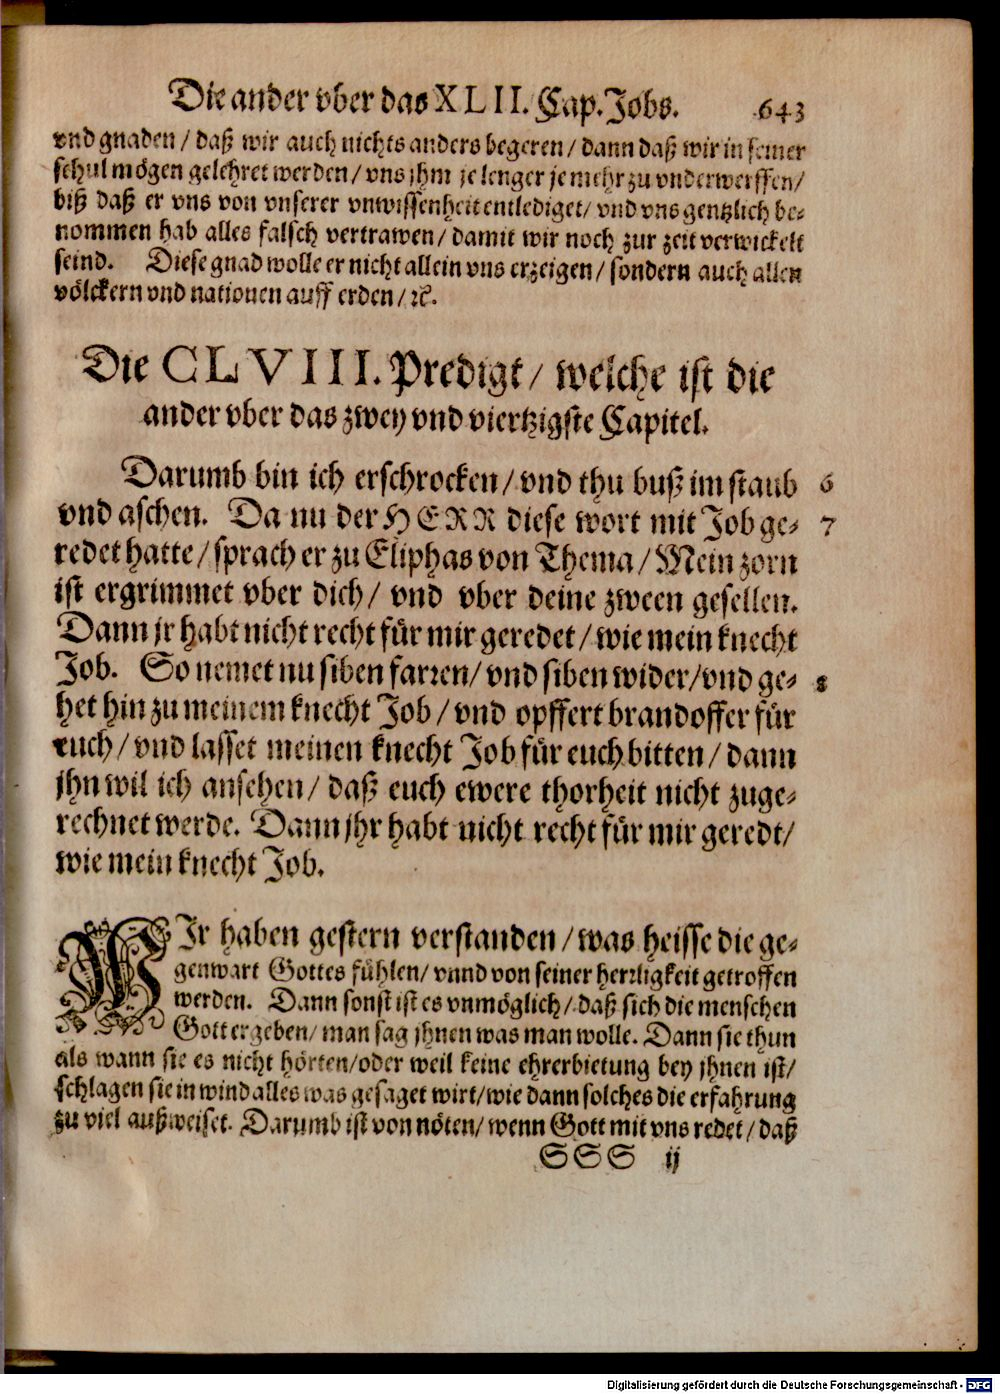 Die ander vber das XLII. Cap. Jobs. 643
vnd gnaden / daß wir auch nichts anders begeren / dann daß wir in seiner
schul mögen gelehret werden / vns jhm je lenger je mehr zu vnderwerffen /
biß daß er vns von vnserer vnwissenheit entlediget / vnd vns gentzlich be-
nommen hab alles falsch vertrawen / damit wir noch zur zeit verwickelt
seind. Diese gnad wolle er nicht allein vns erzeigen / sondern auch allen
völckern vnd nationen auff erden / ꝛc.
Die CLVIII. Predigt / welche ist die
ander vber das zwey vnd viertzigste Capitel.
Darumb bin ich erschrocken / vnd thu buß im staub 6
vnd aschen. Da nu der HERR diese wort mit Job ge- 7
redet hatte / sprach er zu Eliphas von Thema / Mein zorn
ist ergrimmet vber dich / vnd vber deine zween gesellen.
Dann jr habt nicht recht für mir geredet / wie mein knecht
Job. So nemet nu siben farren / vnd siben wider / vnd ge- 8
het hin zu meinem knecht Job / vnd opffert brandoffer für
euch / vnd lasset meinen knecht Job für euch bitten / dann
jhn wil ich ansehen / daß euch ewere thorheit nicht zuge-
rechnet werde. Dann jhr habt nicht recht für mir geredt /
wie mein knecht Job.
WIr haben gestern verstanden / was heisse die ge-
genwart Gottes fühlen / vnnd von seiner herrligkeit getroffen
werden. Dann sonst ist es vnmöglich / daß sich die menschen
Gott ergeben / man sag jhnen was man wolle. Dann sie thun
als wann sie es nicht hörten / oder weil keine ehrerbietung bey jhnen ist /
schlagen sie in wind alles was gesaget wirt / wie dann solches die erfahrung
zu viel außweiset. Darumb ist von nöten / wenn Gott mit vns redet / daß
SSS ij
Digitalisierung gefördert durch die Deutsche Forschungsgemeinschaft - DFG